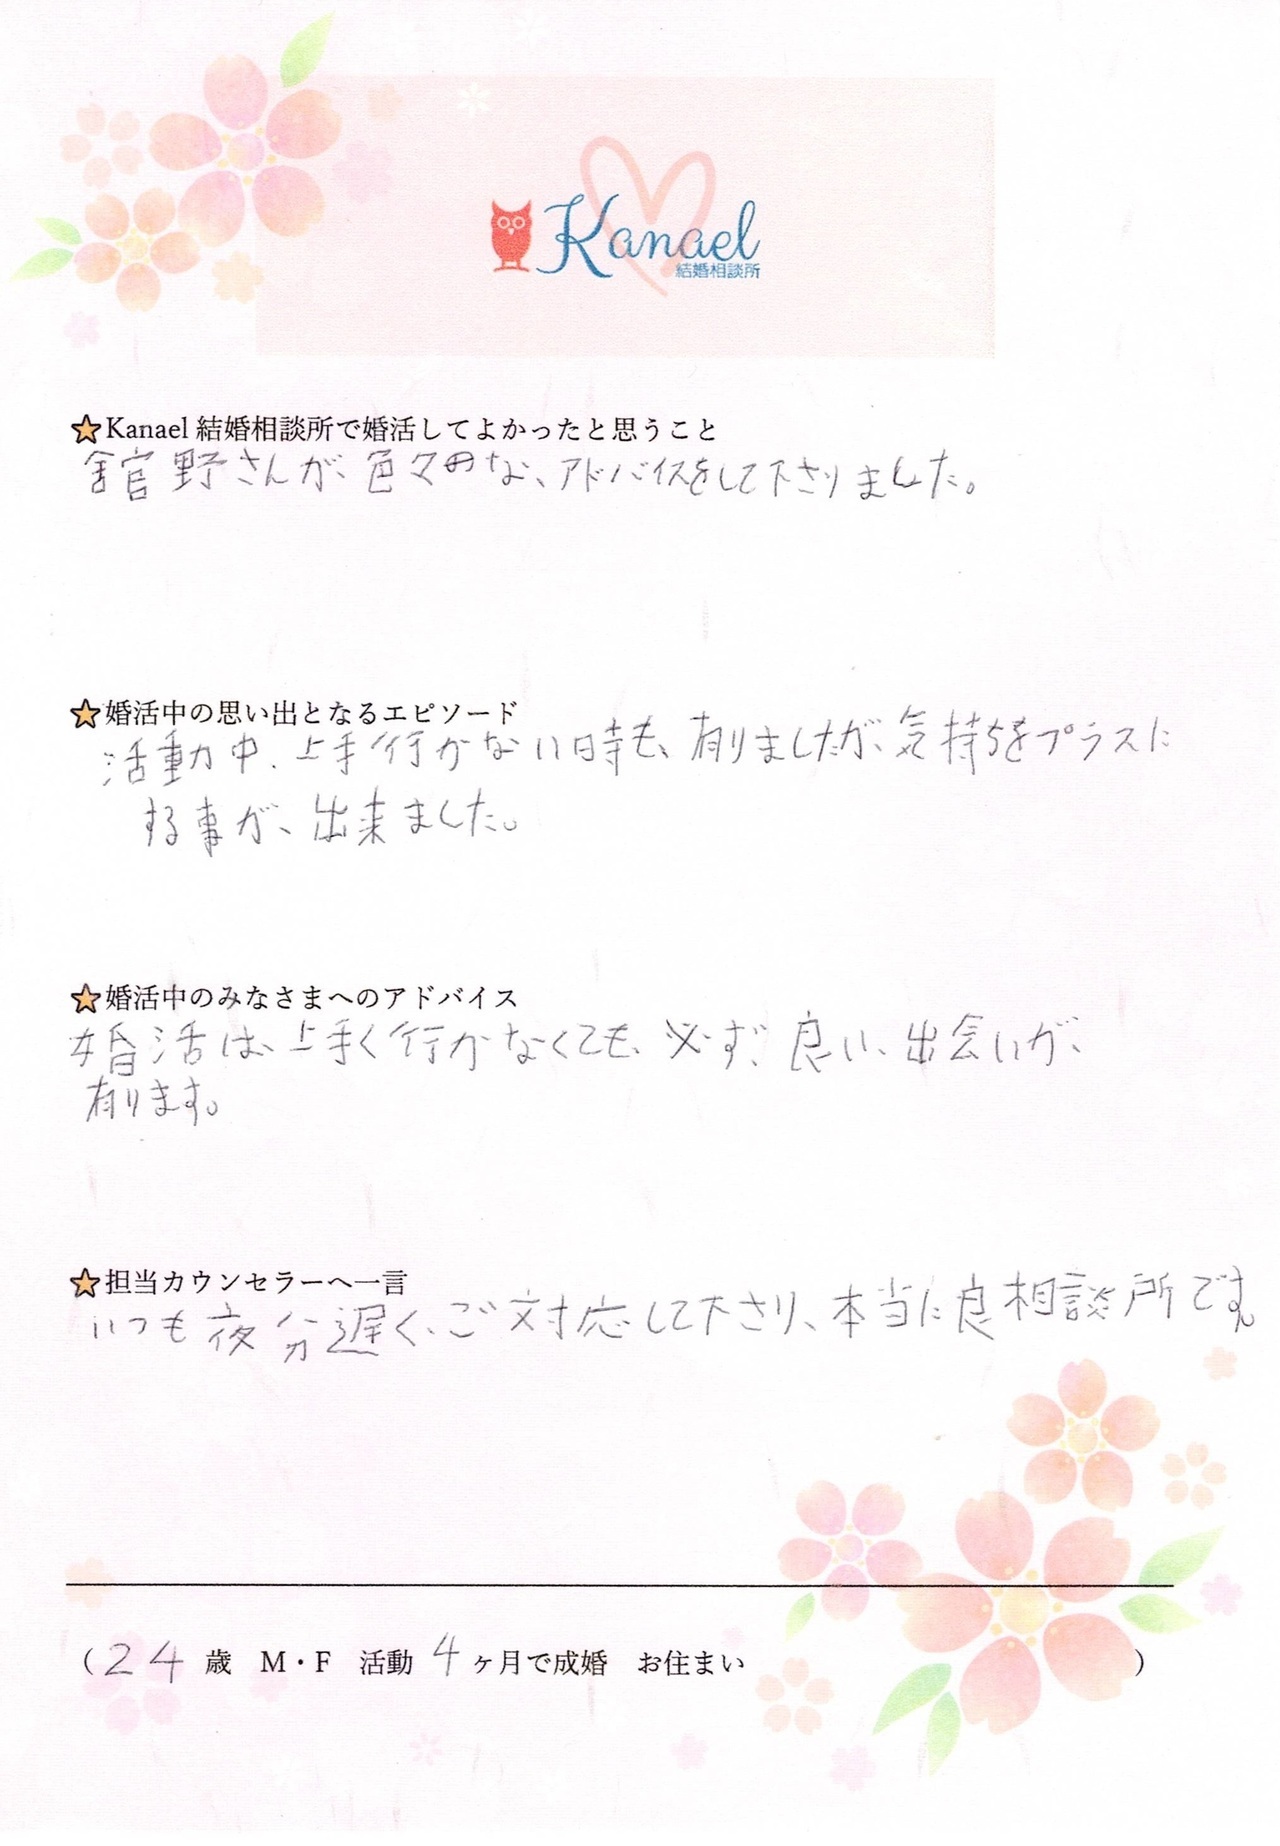 Kanael
結婚相談所
Kanael 結婚相談所で婚活してよかったと思うこと
舘野さんが、色々な、アドバイスをして下さりました。
婚活中の思い出となるエピソード
活動中、上手行かない時も、有りましたが、気持ちをプラスに
する事が、出来ました。
婚活中のみなさまへのアドバイス
婚活は、上手く行かなくても、必ず、良い、出会いが、
有ります。
担当カウンセラーへ一言
いつも夜分遅く、ご対応して下さり、本当に良相談所です。
(24 歳 M・F 活動 4 ヶ月で成婚 お住まい )